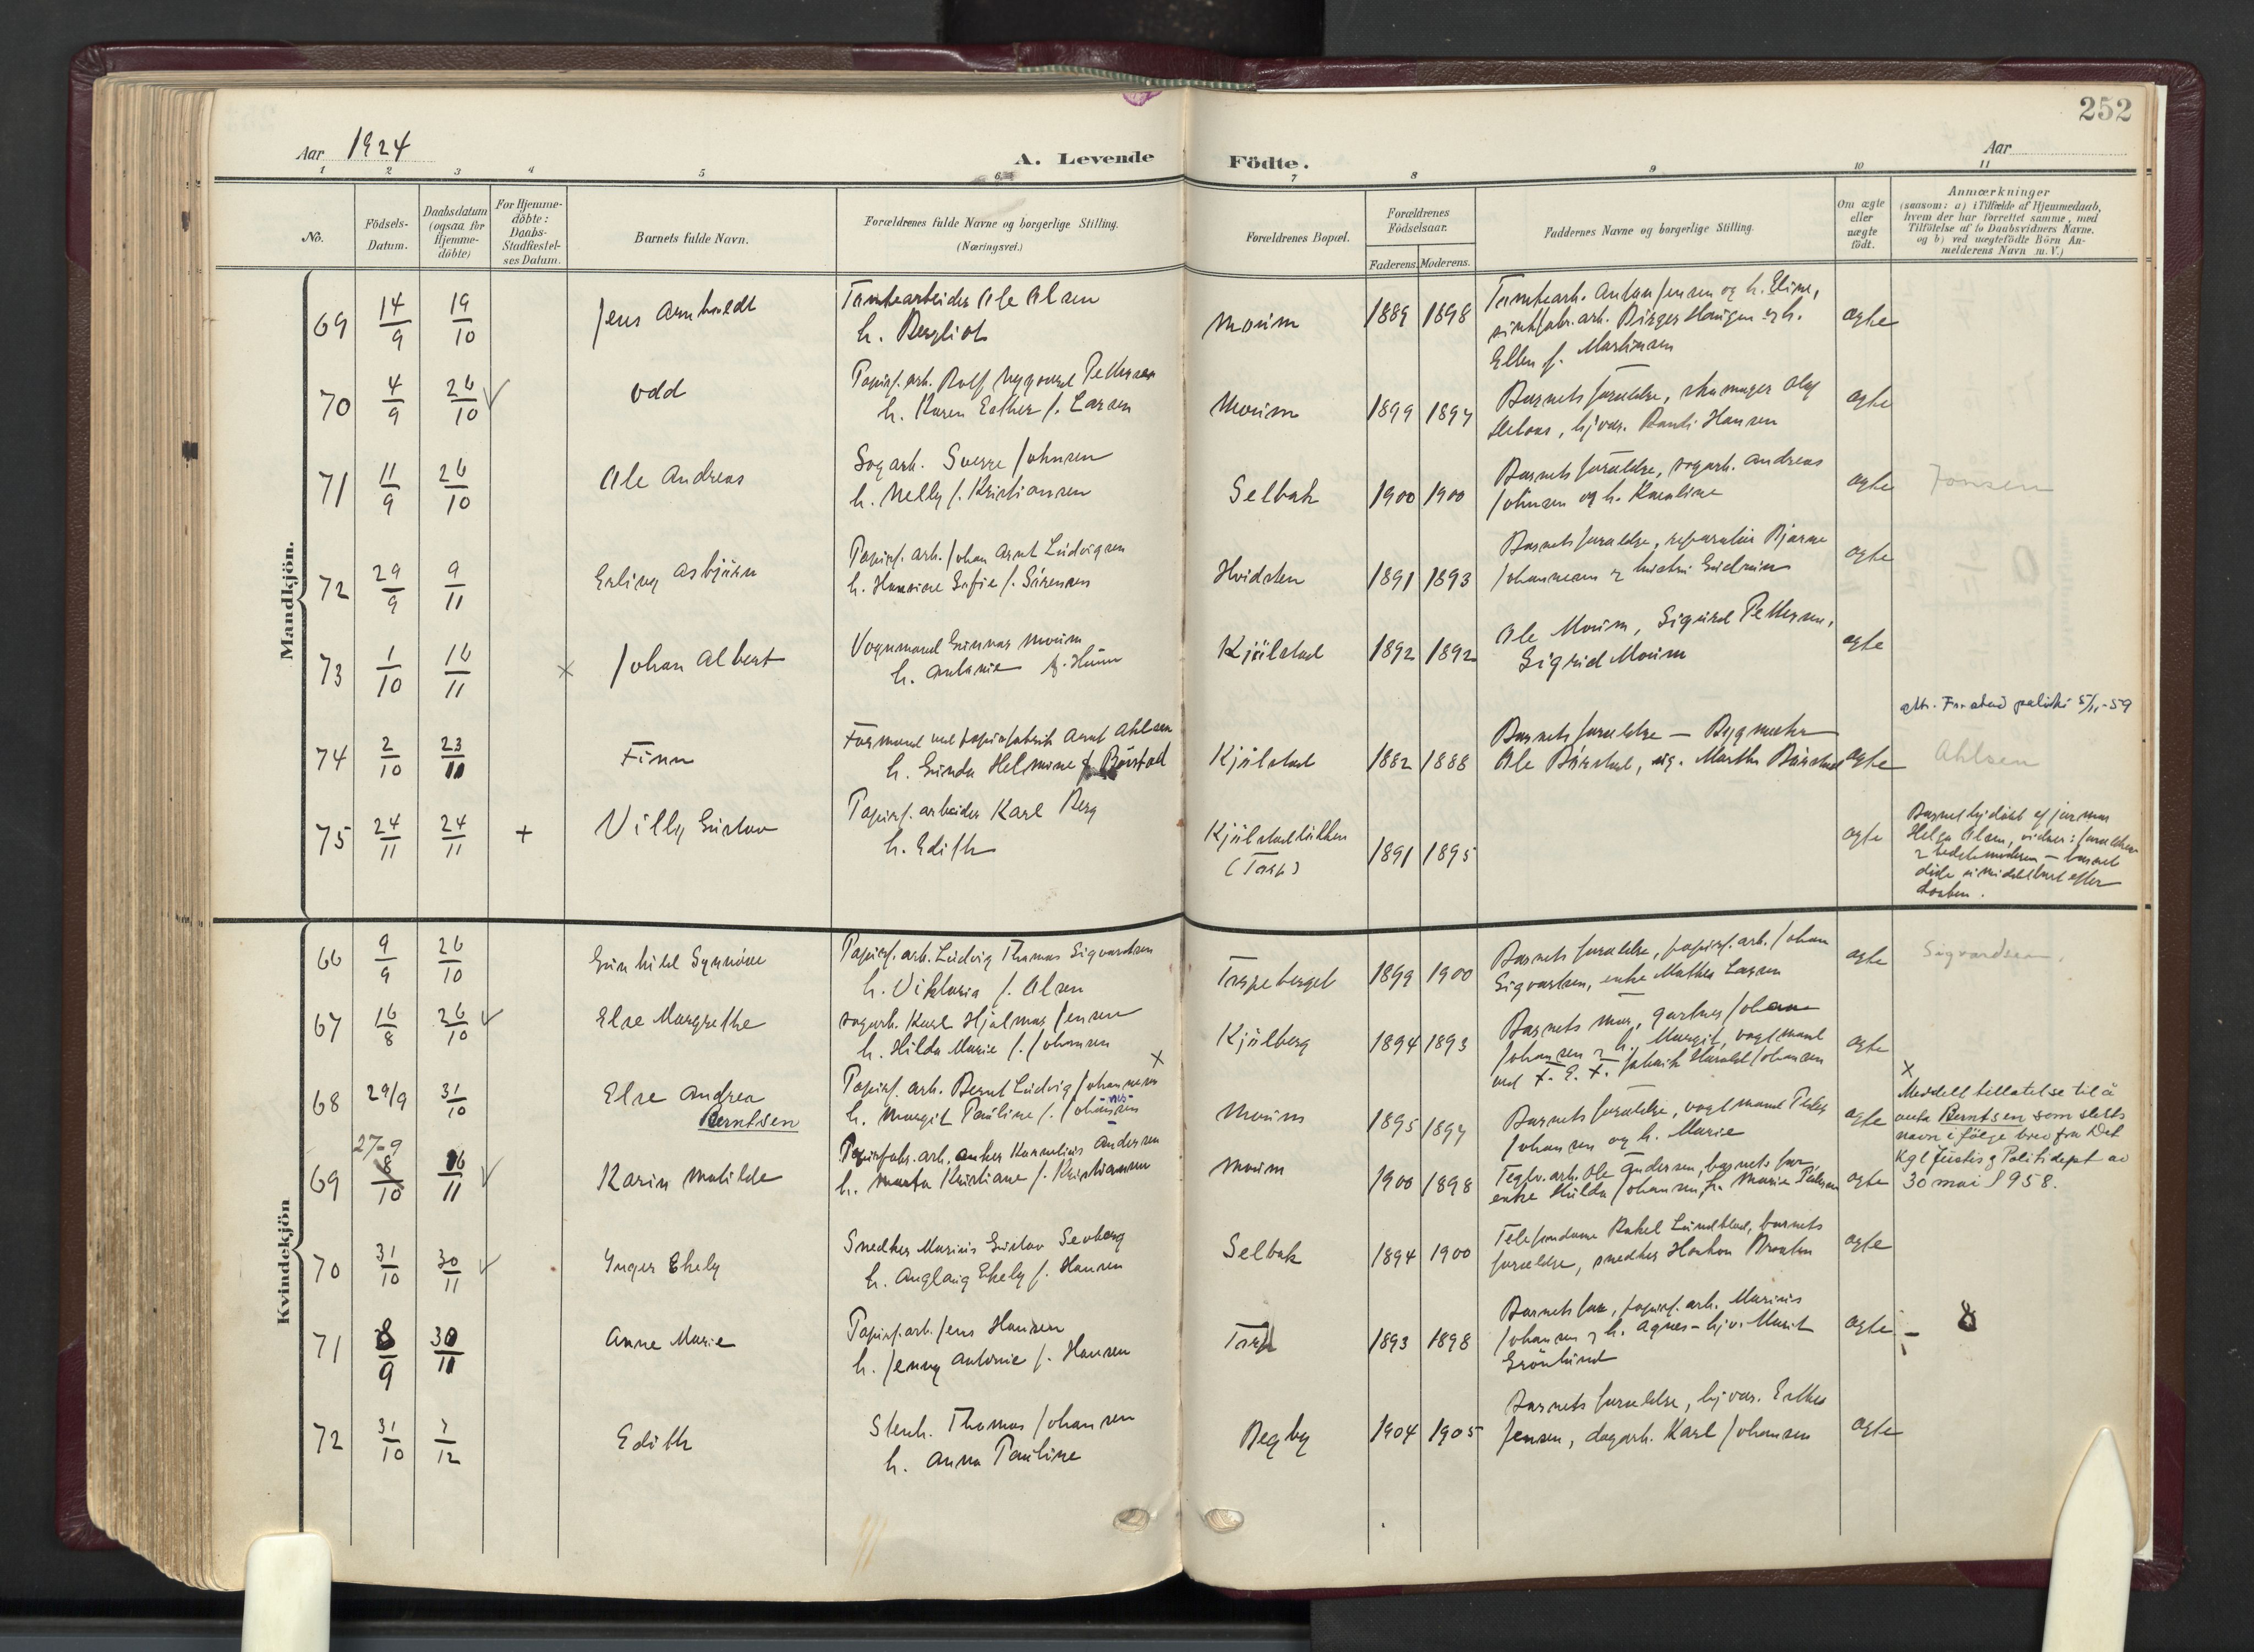 252
Aar 1924
A. Levende Födte.
Aar
1 2 3 4 5 6 7 8 9 10 11
No.
Födsels-
Datum.
Daabsdatum
(ogsaa for
Hjemme-
döbte)
For Hjemme-
döbte:
Daabs-
Stadfæstel-
ses Datum.
Barnets fulde Navn.
Forældrenes fulde Navne og borgerlige Stilling.
(Næringsvei.)
Forældrenes Bopæl.
Forældrenes
Födselsaar.
Faderens. Moderens.
Faddernes Navne og borgerlige Stilling.
Om ægte
eller
uægte
födt.
Anmærkninger
(saasom: a) i Tilfælde af Hjemmedaab,
hvem der har forrettet samme, med
Tilföielse af to Daabsvidners Navne.
og b) ved uægtefödte Börn An-
melderens Navn m. V.)
Mandkjön.
69 14/9 19/10 Jens Arnholdt
Tomtearbeider Ole Olsen
h. Bergliot
Moum 1889 1898
Tomtearb. Anton Jensen og h. Eline,
Birger Haugen og h.
Ellen f. Martinsen
ægte
70 4/9 26/10 Odd
Papirf. arb. Rolf Nygaard Pettersen
h. Karen Esther f. Larsen
Moum 1899 1897
Barnets forældre, skomager Olaf
hjvær. Hansen
ægte
71 11/9 26/10 Ole Andreas
Sagarb. Sverre Johnsen
h. Nelly f. Kristiansen
Selbak 1900 1900
Barnets forældre, sagarb. Andreas
Johnsen og h. Karoline
ægte
Jonsen
72 29/9 9/11 Erling Asbjörn
Papirf. arb. Johan Arnt Ludvigsen
h. Hansine Sofie f. Sörensen
Hvidsten 1891 1893
Barnets forældre, reparatör Bjarne
Johannesen & hustru Gudrun
ægte
73 1/10 16/11 × Johan Albert
Vognmand Gunnar Moum
h. Antonie f. Hunn
Kjölstad 1892 1892
Ole Moum, Sigurd Pettersen,
Sigrid Moum
ægte
74 2/10 23/11 Finn
Formand ved papirfabrik Arnt Ahlsen
h. Gunda Helmine f. Börstad
Kjölstad 1882 1888
Barnets forældre — Bygmester
Ole Börstad, Martha Börstad
ægte
att. Fr.stad politi 5/11-59
Ahlsen
75 24/11 24/11 + Villy Gustav
Papirf. arbeider Karl Berg
h. Edith
(Torp)
1891 1895
ægte
Barnet hjdöbt af jormor
Helga Olsen, vidner: forældrene
& bedstemoderen — barnet
döde umiddelbart efter
daaben.
Kvindekjön
66 9/9 26/10 Gunhild Synnöve
Papirf. arb. Ludvig Thomas Sigvardsen
h. Viktoria f. Olsen
Torpeberget 1899 1900
Barnets forældre, papirf. arb. Johan
Sigvartsen, enke Mathea Larsen
ægte
Sigvardsen.
67 16/8 26/10 Else Margrethe
Sagarb. Karl Hjalmar Jensen
h. Hilda Marie f. Johansen
Kjölberg 1894 1893
Barnets mor, gartner Johan
Johansen & h. Margit, vagtmand
ved F. E. F. fabrik Harald Johansen
ægte
68 29/9 31/10 Else Andrea
Berntsen
Papirf. arb. Bernt Ludvig Johannesen ×
h. Margit Pauline f. Johansen
Moum 1895 1897
Barnets forældre, vagtmand Peder
Johansen og h. Marie
ægte
×
Meddelt tillatelse til å
anta Berntsen som slekts
navn i följe brev fra Det
Kgl Justis g Politidept av
30 mai 1958.
69 27-9 8/10 16/11 Karin Matilde
Papirfabr. arb. Anker Kornelius Andersen
h. Marta Kristiane f. Kristiansen
Moum 1900 1898
Teglv. arb. Ole Andersen, barnets far
enke Hulda Johansen, fr. Marie Pedersen
ægte
70 31/10 30/11 Inger Ekely
Snedker Marius Gustav Seoberg
h. Auglaug Ekely f. Hansen
Selbak 1894 1900
Telefondame Rakel Lundblad, barnets
forældre, snedker Haakon Braaten
ægte
71 8/9 30/11 Anne Marie
Papirf. arb. Jens Hansen
h. Jenny Antonie f. Hansen
Torp 1893 1898
Barnets far, papirf. arb. Marinius
Johansen & h. Agnes — hjv. Marit
Grönlund
ægte
72 31/10 7/12 Edith
Stenh. Thomas Johansen
h. Anna Pauline
Begby 1904 1905
Barnets forældre, hjvær. Esther
Jensen, dagarb. Karl Johansen
ægte